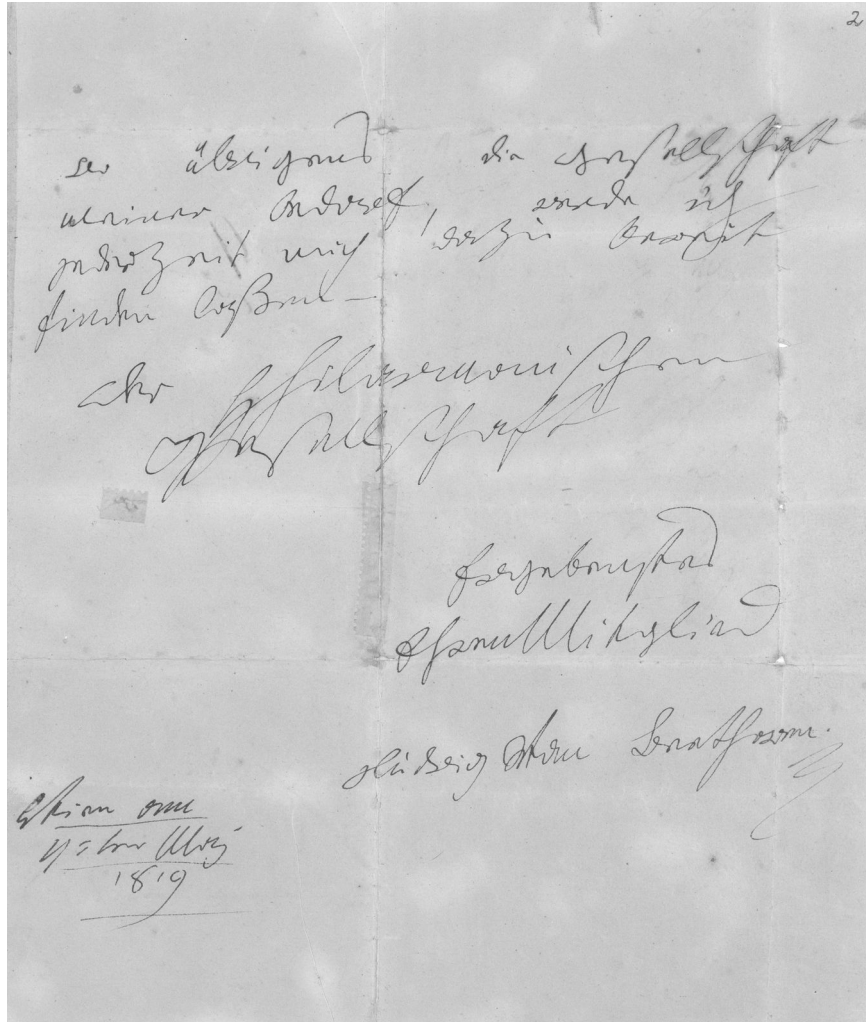 übrigens die Gesellschaft
meiner Bedarf, werde ich
jederzeit mich dazu bereit
finden laßen –
der philarmonischen
Gesellschaft
Ergebenstes
EhrenMitglied
Ludwig Van Beethowen.
Wien am
4=ten May
1819
2